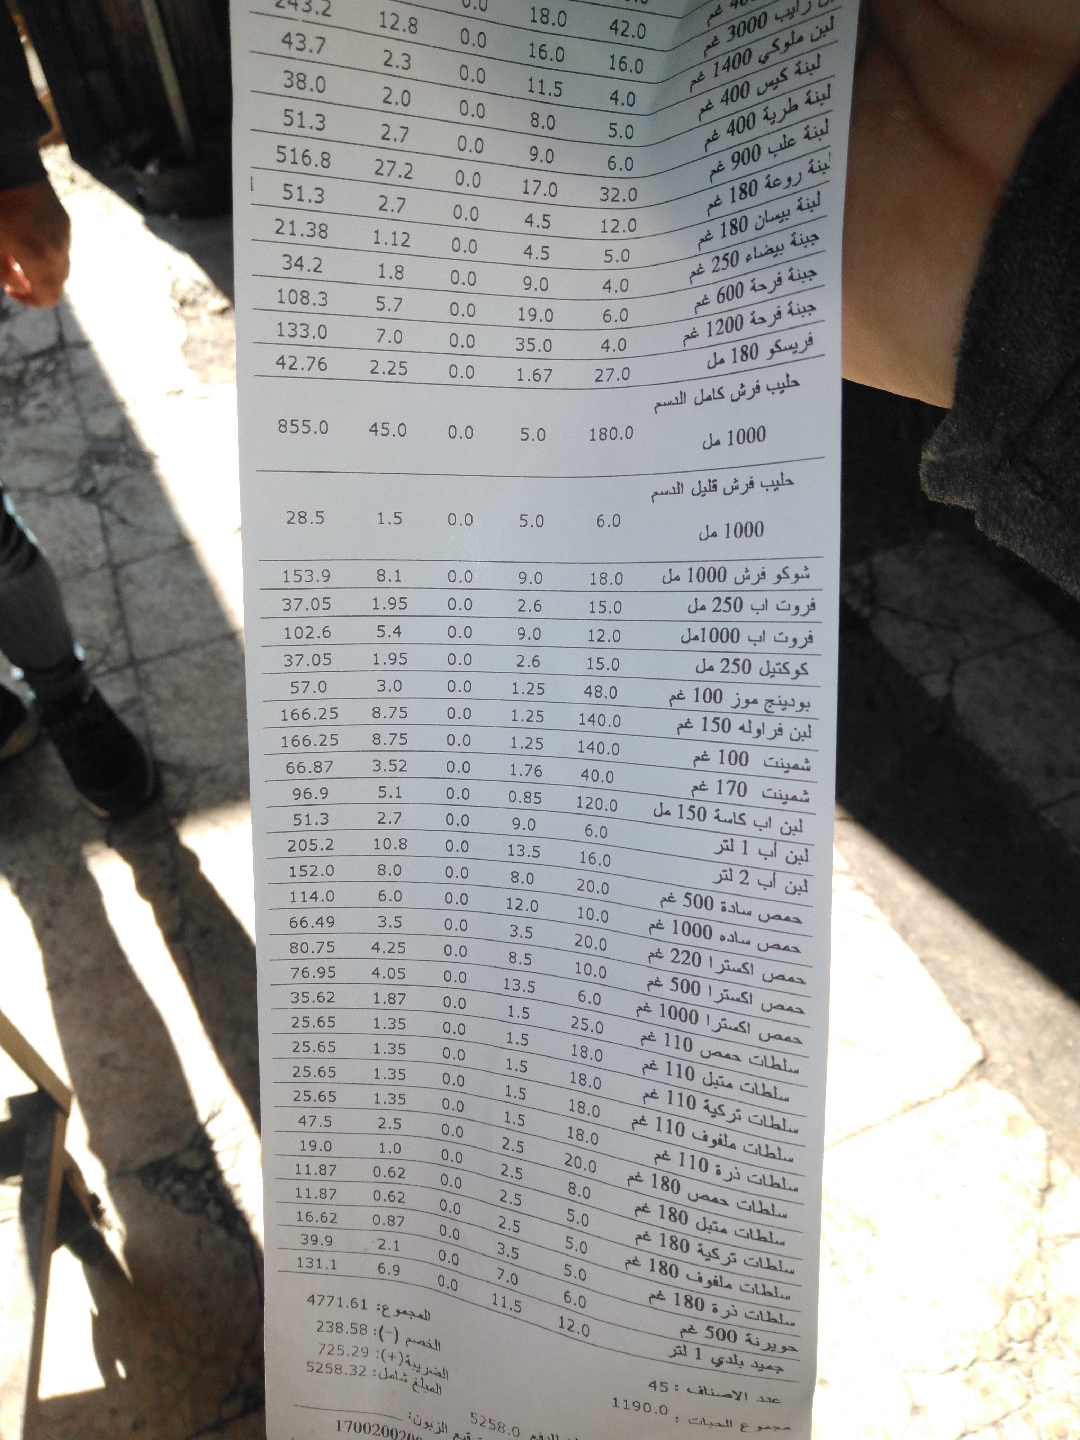 غم 42.0 18.0 0.0
رايب 3000 غم 16.0 16.0 0.0 12.8 243.2
لبن ملوكي 1400 غم 4.0 11.5 0.0 2.3 43.7
لبنة كيس 400 غم 5.0 8.0 0.0 2.0 38.0
لبنة طرية 400 غم 6.0 9.0 0.0 2.7 51.3
لبنة علب 900 غم 32.0 17.0 0.0 27.2 516.8
لبنة روعة 180 غم 12.0 4.5 0.0 2.7 51.3
لبنة بيسان 180 غم 5.0 4.5 0.0 1.12 21.38
جبنة بيضاء 250 غم 4.0 9.0 0.0 1.8 34.2
جبنة فرحة 600 غم 6.0 19.0 0.0 5.7 108.3
جبنة فرحة 1200 غم 4.0 35.0 0.0 7.0 133.0
فريسكو 180 مل 27.0 1.67 0.0 2.25 42.76
حليب فرش كامل الدسم
1000 مل 180.0 5.0 0.0 45.0 855.0
حليب فرش قليل الدسم
1000 مل 6.0 5.0 0.0 1.5 28.5
شوكو فرش 1000 مل 18.0 9.0 0.0 8.1 153.9
فروت اب 250 مل 15.0 2.6 0.0 1.95 37.05
فروت اب 1000مل 12.0 9.0 0.0 5.4 102.6
كوكتيل 250 مل 15.0 2.6 0.0 1.95 37.05
بودينج موز 100 غم 48.0 1.25 0.0 3.0 57.0
لبن فراوله 150 غم 140.0 1.25 0.0 8.75 166.25
شمينت 100 غم 140.0 1.25 0.0 8.75 166.25
شمينت 170 غم 40.0 1.76 0.0 3.52 66.87
لبن اب كاسة 150 مل 120.0 0.85 0.0 5.1 96.9
لبن أب 1 لتر 6.0 9.0 0.0 2.7 51.3
لبن أب 2 لتر 16.0 13.5 0.0 10.8 205.2
حمص سادة 500 غم 20.0 8.0 0.0 8.0 152.0
حمص ساده 1000 غم 10.0 12.0 0.0 6.0 114.0
حمص اكسترا 220 غم 20.0 3.5 0.0 3.5 66.49
حمص اكسترا 500 غم 10.0 8.5 0.0 4.25 80.75
حمص اكسترا 1000 غم 6.0 13.5 0.0 4.05 76.95
سلطات حمص 110 غم 25.0 1.5 0.0 1.87 35.62
سلطات متبل 110 غم 18.0 1.5 0.0 1.35 25.65
سلطات تركية 110 غم 18.0 1.5 0.0 1.35 25.65
سلطات ملفوف 110 غم 18.0 1.5 0.0 1.35 25.65
سلطات ذرة 110 غم 18.0 1.5 0.0 1.35 25.65
سلطات حمص 180 غم 20.0 2.5 0.0 2.5 47.5
سلطات متبل 180 غم 8.0 2.5 0.0 1.0 19.0
سلطات تركية 180 غم 5.0 2.5 0.0 0.62 11.87
سلطات ملفوف 180 غم 5.0 2.5 0.0 0.62 11.87
سلطات ذرة 180 غم 5.0 3.5 0.0 0.87 16.62
حويرنة 500 غم 6.0 7.0 0.0 2.1 39.9
جميد بلدي 1 لتر 12.0 11.5 0.0 6.9 131.1
المجموع: 4771.61
الخصم (-): 238.58
الضريبة(+): 725.29
المبلغ شامل: 5258.32
عدد الاصناف : 45
مجموع الحبات : 1190.0
الدفع 5258.0
الزبون: